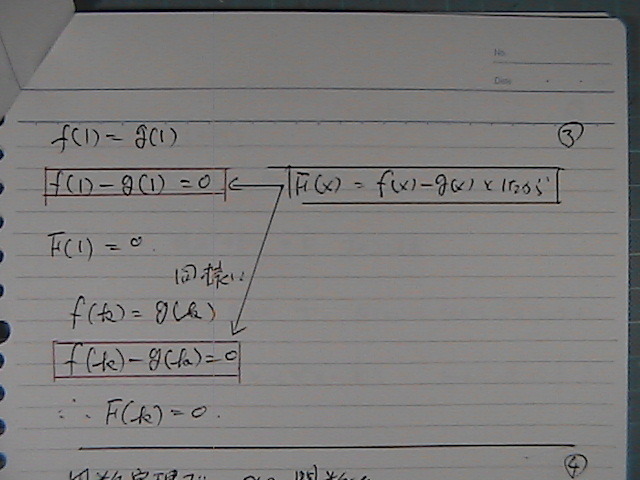 No.
Date
③
f(1) = g(1)
f(1) - g(1) = 0 ← F(x) = f(x) - g(x) とすると
F(1) = 0.
同様に
f(k) = g(k)
f(k) - g(k) = 0
∴ F(k) = 0.
④